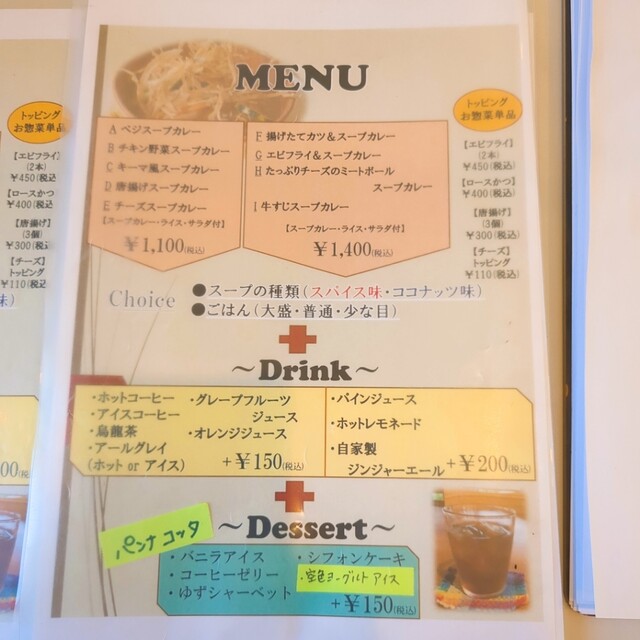 MENU
トッピング
お惣菜単品
A ベジスープカレー
B チキン野菜スープカレー
C キーマ風スープカレー
D 唐揚げスープカレー
E チーズスープカレー
【スープカレー・ライス・サラダ付】
¥1,100(税込)
F 揚げたてカツ&スープカレー
G エビフライ&スープカレー
H たっぷりチーズのミートボール
スープカレー
I 牛すじスープカレー
【スープカレー・ライス・サラダ付】
¥1,400(税込)
【エビフライ】
(2本)
¥450(税込)
【ロースかつ】
¥400(税込)
【唐揚げ】
(3個)
¥300(税込)
【チーズ】
トッピング
¥110(税込)
Choice
●スープの種類(スパイス味・ココナッツ味)
●ごはん(大盛・普通・少な目)
～Drink～
・ホットコーヒー
・アイスコーヒー
・烏龍茶
・アールグレイ
(ホット or アイス)
・グレープフルーツ
ジュース
・オレンジジュース
+¥150(税込)
・パインジュース
・ホットレモネード
・自家製
ジンジャーエール
+¥200(税込)
～Dessert～
パンナコッタ
・バニラアイス
・コーヒーゼリー
・ゆずシャーベット
・シフォンケーキ
・空色ヨーグルトアイス
+¥150(税込)
トッピング
お惣菜単品
【エビフライ】
(2本)
¥450(税込
【ロースかつ】
¥400(税込
【唐揚げ】
(3個)
¥300(税込
【チーズ】
トッピング
¥110(税込
味)
00(税込)